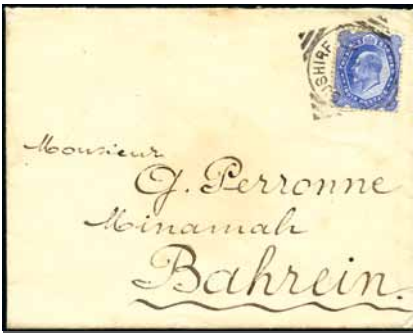 BUSHIRE
Monsieur
G. Perronne
Minamah
Bahrein.